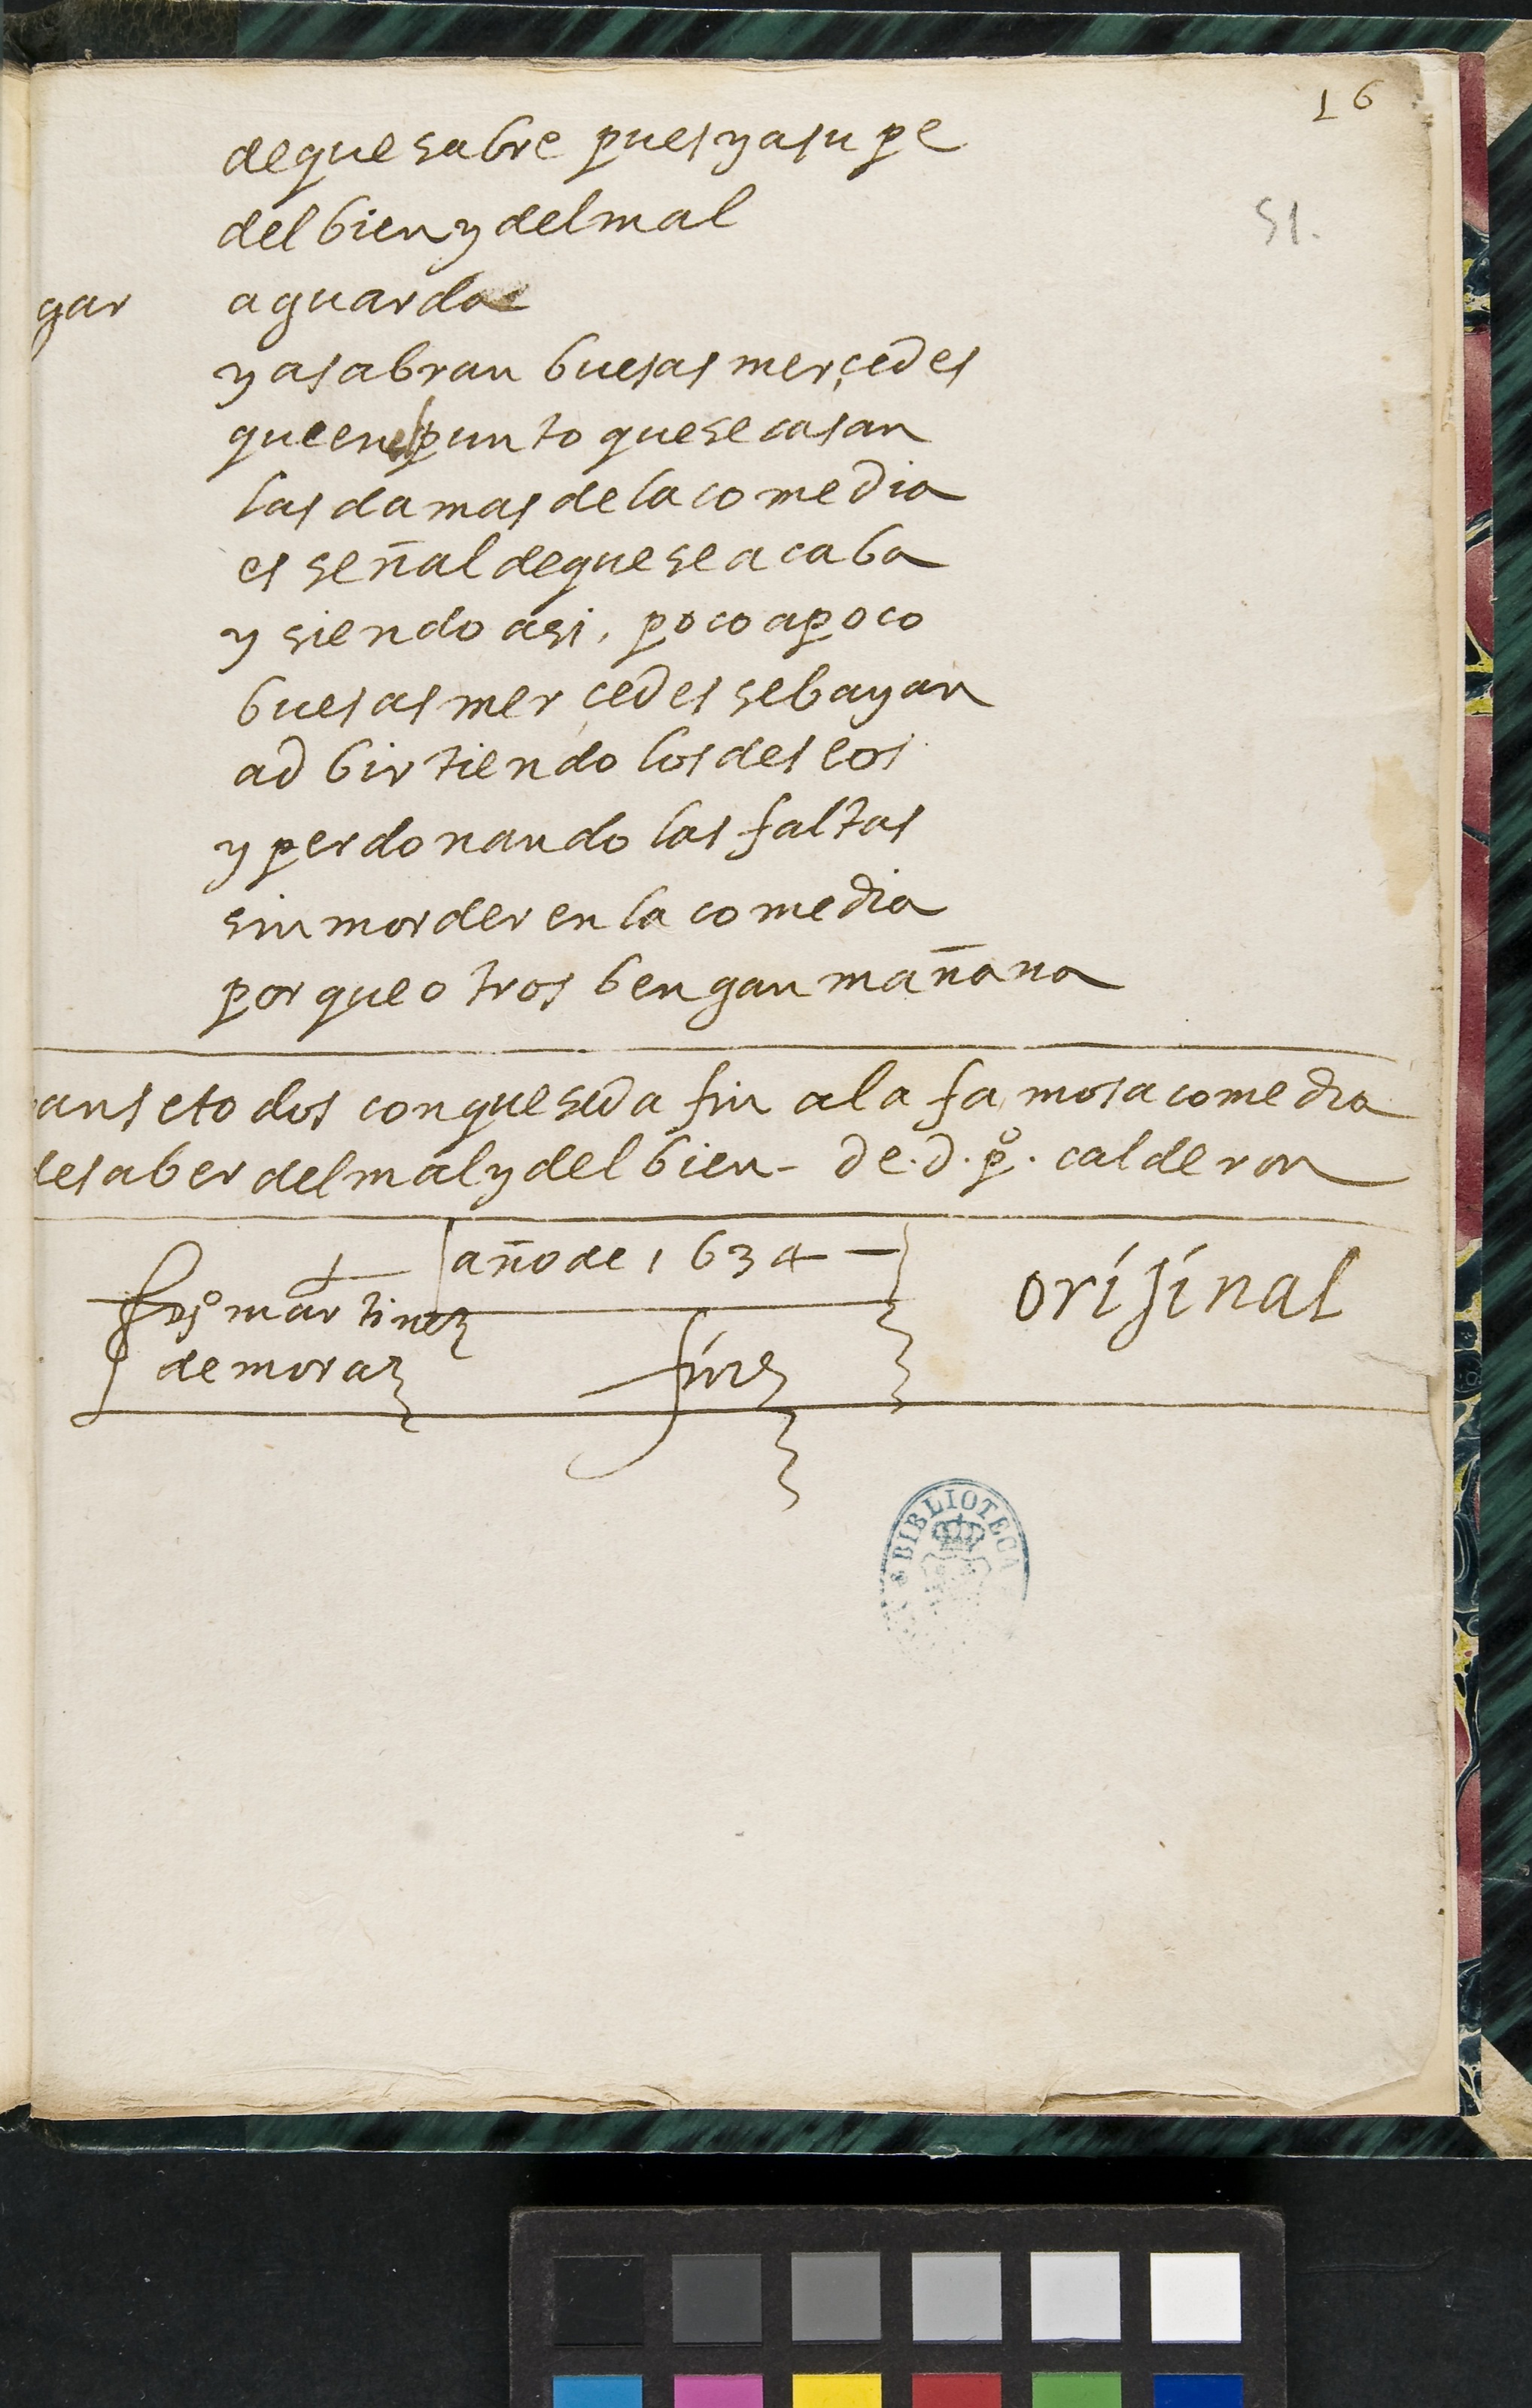 16
51.
de que sabre pues ya supe
del bien y del mal
gar aguarda
ya sabran buesas merçedes
que en el punto que se casan
las damas de la comedia
es señal de que se acaba
y siendo asi, poco a poco
buesas merçedes se bayan
adbirtiendo los deseos
y perdonando las faltas
sin morder en la comedia
porque otros bengan mañana
anse todos con que se da fin a la famosa comedia
de saber del mal y del bien - de. d. pº. calderon
año de 1634
orijinal
martinez
de mora
fin
BIBLIOTECA